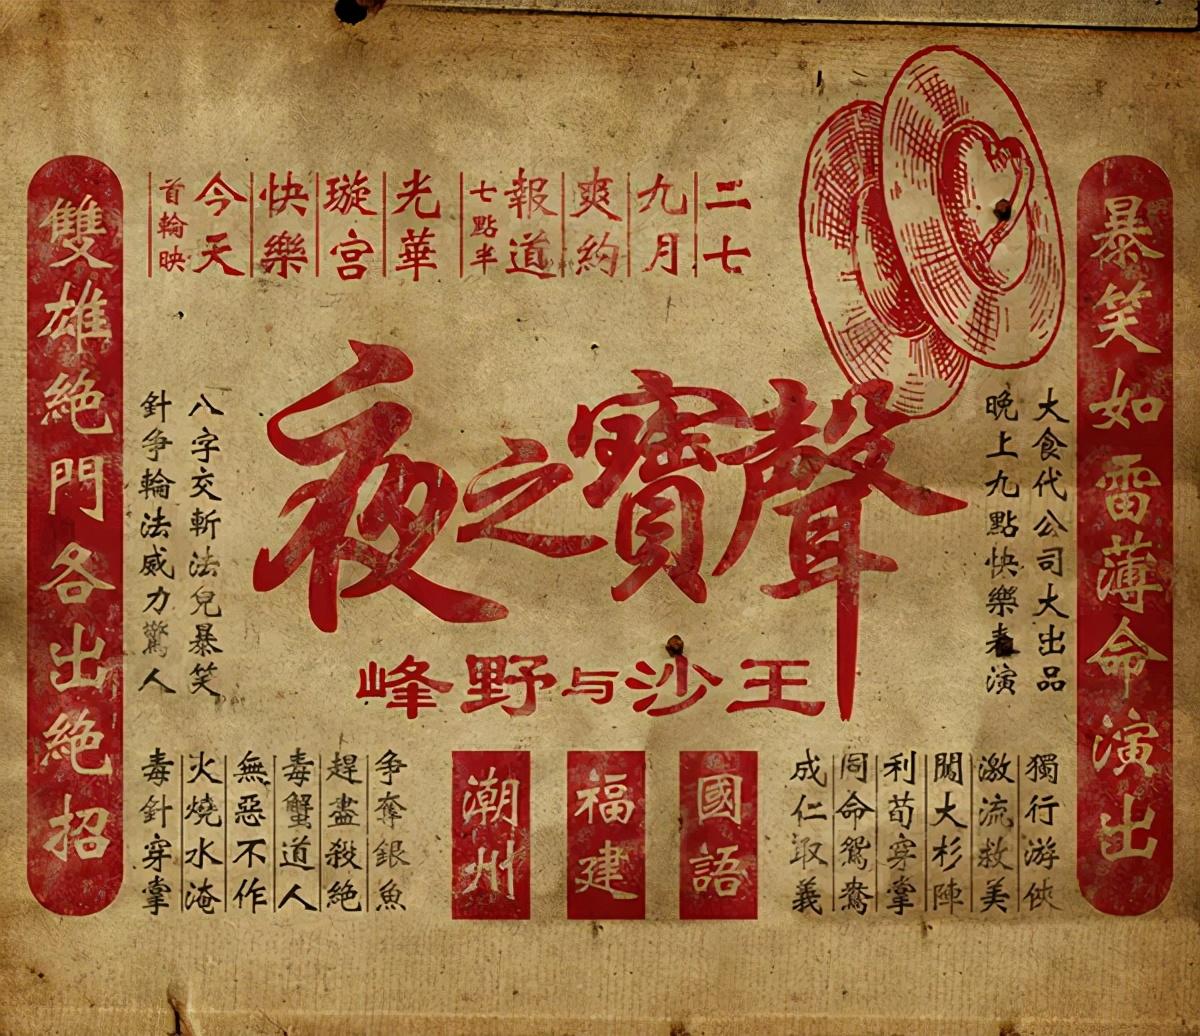 暴笑如雷薄命演出
二七
九月
爽約
報道
七點半
光華
璇宮
快樂
今天
首輪映
大食代公司大出品
晚上九點快樂演
聲寶之夜
王沙与野峰
八字交斬法兒暴笑
針争輪法威力驚人
獨行游俠
激流救美
闖大杉陣
利荀穿掌
同命鴛鴦
成仁取義
國語
福建
潮州
争奪銀魚
趕盡殺絶
毒蟹道人
無惡不作
火燒水淹
毒針穿掌
雙雄絶門各出絶招